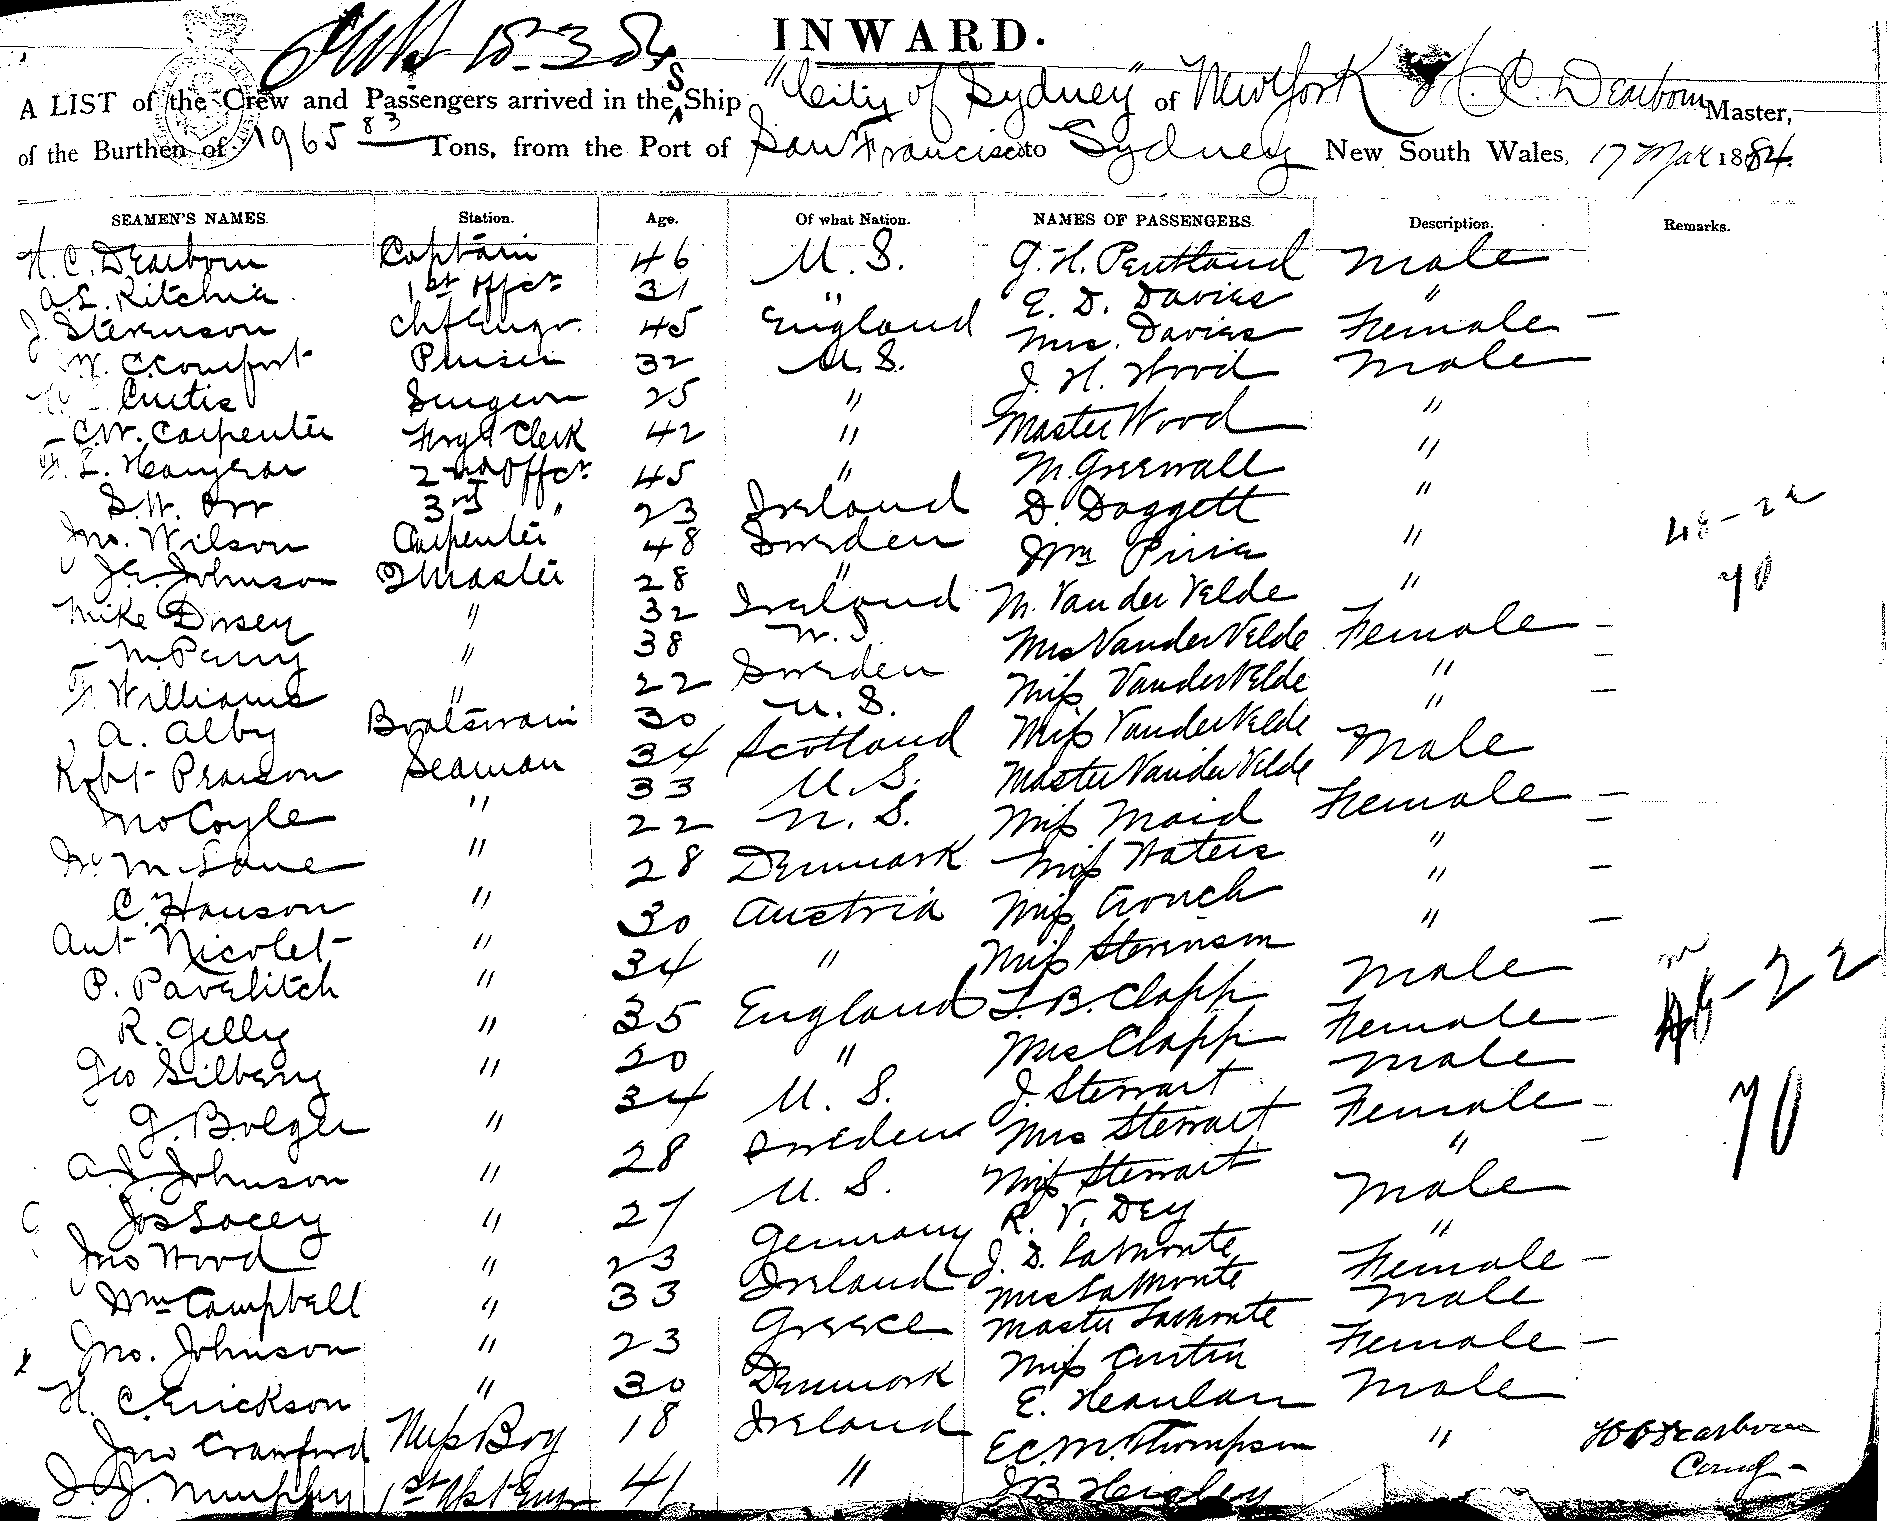 INWARD.
A LIST of the Crew and Passengers arrived in the S Ship "City of Sydney" of New York H. C. Dearborn Master,
of the Burthen of 1965 83 Tons, from the Port of San Francisco to Sydney New South Wales, 17 Mar 1884.
SEAMEN'S NAMES. Station. Age. Of what Nation. NAMES OF PASSENGERS. Description. Remarks.
H. C. Dearborn Captain 46 U. S. G. H. Pentland Male
A. L. Ritchie 1st offcr 31 " E. D. Davies "
J Stevenson Chf Engr. 45 England Mrs. Davies Female -
W. C. Comfort Purser 32 U. S. J. H. Wood Male
Curtis Surgeon 25 " Master Wood "
C. W. Carpenter Frgt Clerk 42 " M. Greenall "
F. L. 2nd Offcr 45 " D. Doggett "
S. W. Orr 3rd " 23 Ireland Wm Pirie "
Jno. Wilson Carpenter 48 Sweden M. Van der Velde "
J. A. Johnson Q Master 28 " Mrs Vander Velde Female -
Mike Dorsey " 32 Ireland Miss Vander Velde " -
M Perry " 38 Miss Vander Velde " -
F. Williams " 22 Sweden Master Vander Velde Male
A. Alby Boatswain 30 U. S. Miss Maid Female -
Robt Pearson Seaman 34 Scotland Miss Waters " -
Jno Coyle " 33 U. S. Miss Crouch " -
" 22 N. S. Miss Stevenson " -
C. Hanson " 28 Denmark L. B. Clapp Male
Ant Nicolet " 30 Austria Mrs Clapp Female -
P. Pavelitch " 34 " J. Stewart Male
R. Gelly " 35 England Mrs Stewart Female -
Geo Silberry " 20 " Miss Stewart " -
G. Bolger " 34 U. S. R. V. Dey Male
A. J. Johnson " 28 Sweden J. D. LaMonte "
Jos Lacey " 27 U. S. Mrs LaMonte Female -
Jno Wood " 23 Germany Master LaMonte Male
Wm Campbell " 33 Ireland Miss Curtin Female -
Jno. Johnson " 23 Greece E. Heanlan Male
H. C. Erickson " 30 Denmark E. C. M. Thompson "
Jno Crawford Mess Boy 18 Ireland J B Heigley
J. J. Murphy 1st Asst Engr 41 "
48-22
70
48-22
70
H C Dearborn
Comd -